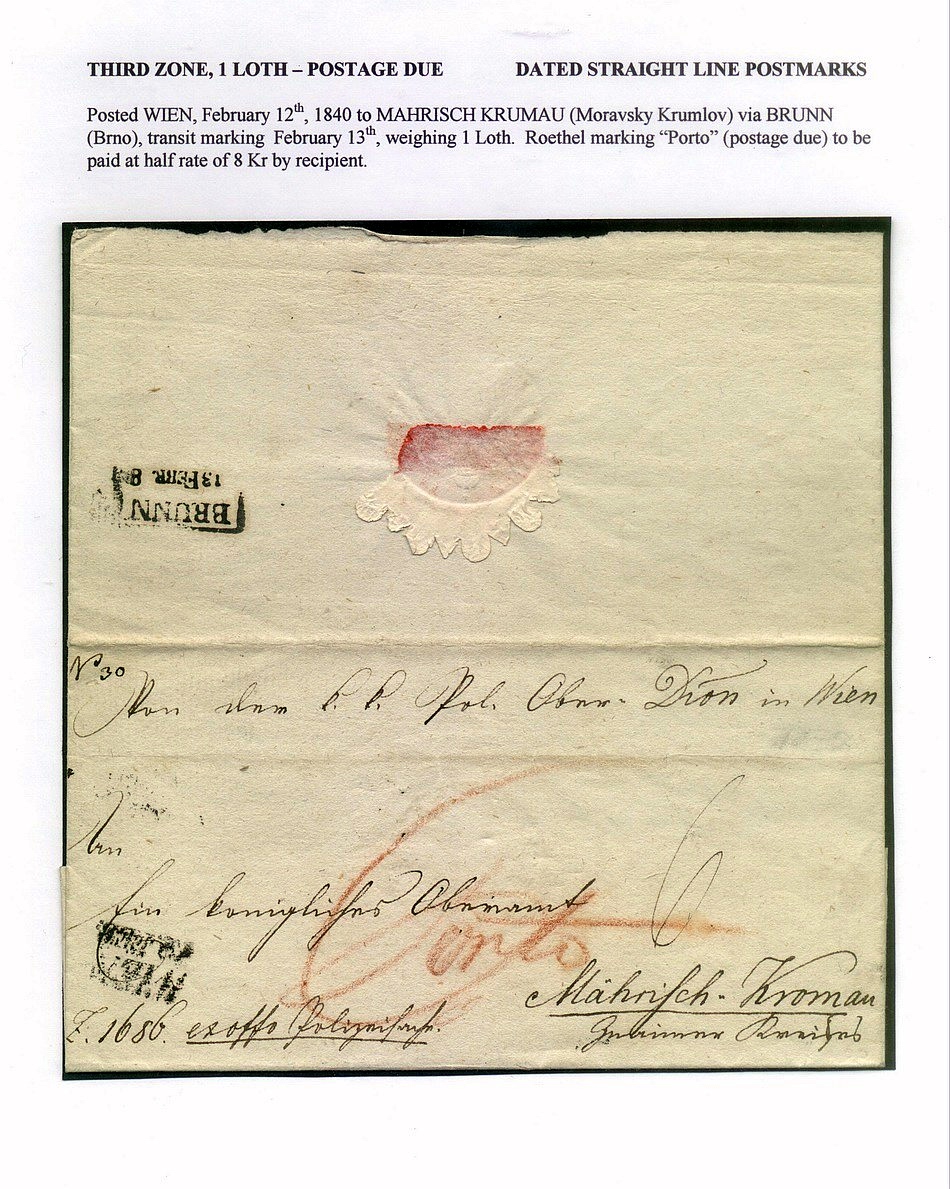 THIRD ZONE, 1 LOTH – POSTAGE DUE DATED STRAIGHT LINE POSTMARKS
Posted WIEN, February 12th, 1840 to MAHRISCH KRUMAU (Moravsky Krumlov) via BRUNN
(Brno), transit marking February 13th, weighing 1 Loth. Roethel marking “Porto” (postage due) to be
paid at half rate of 8 Kr by recipient.
BRUNN
13 FEBR. 8
No 30
Von der k. k. Pol. Ober- Dion in Wien
An
Ein königliches Oberamt
Porto
Mährisch- Kromau
Z. 1686. exoffo Polizeisache.
Znaimer Kreises